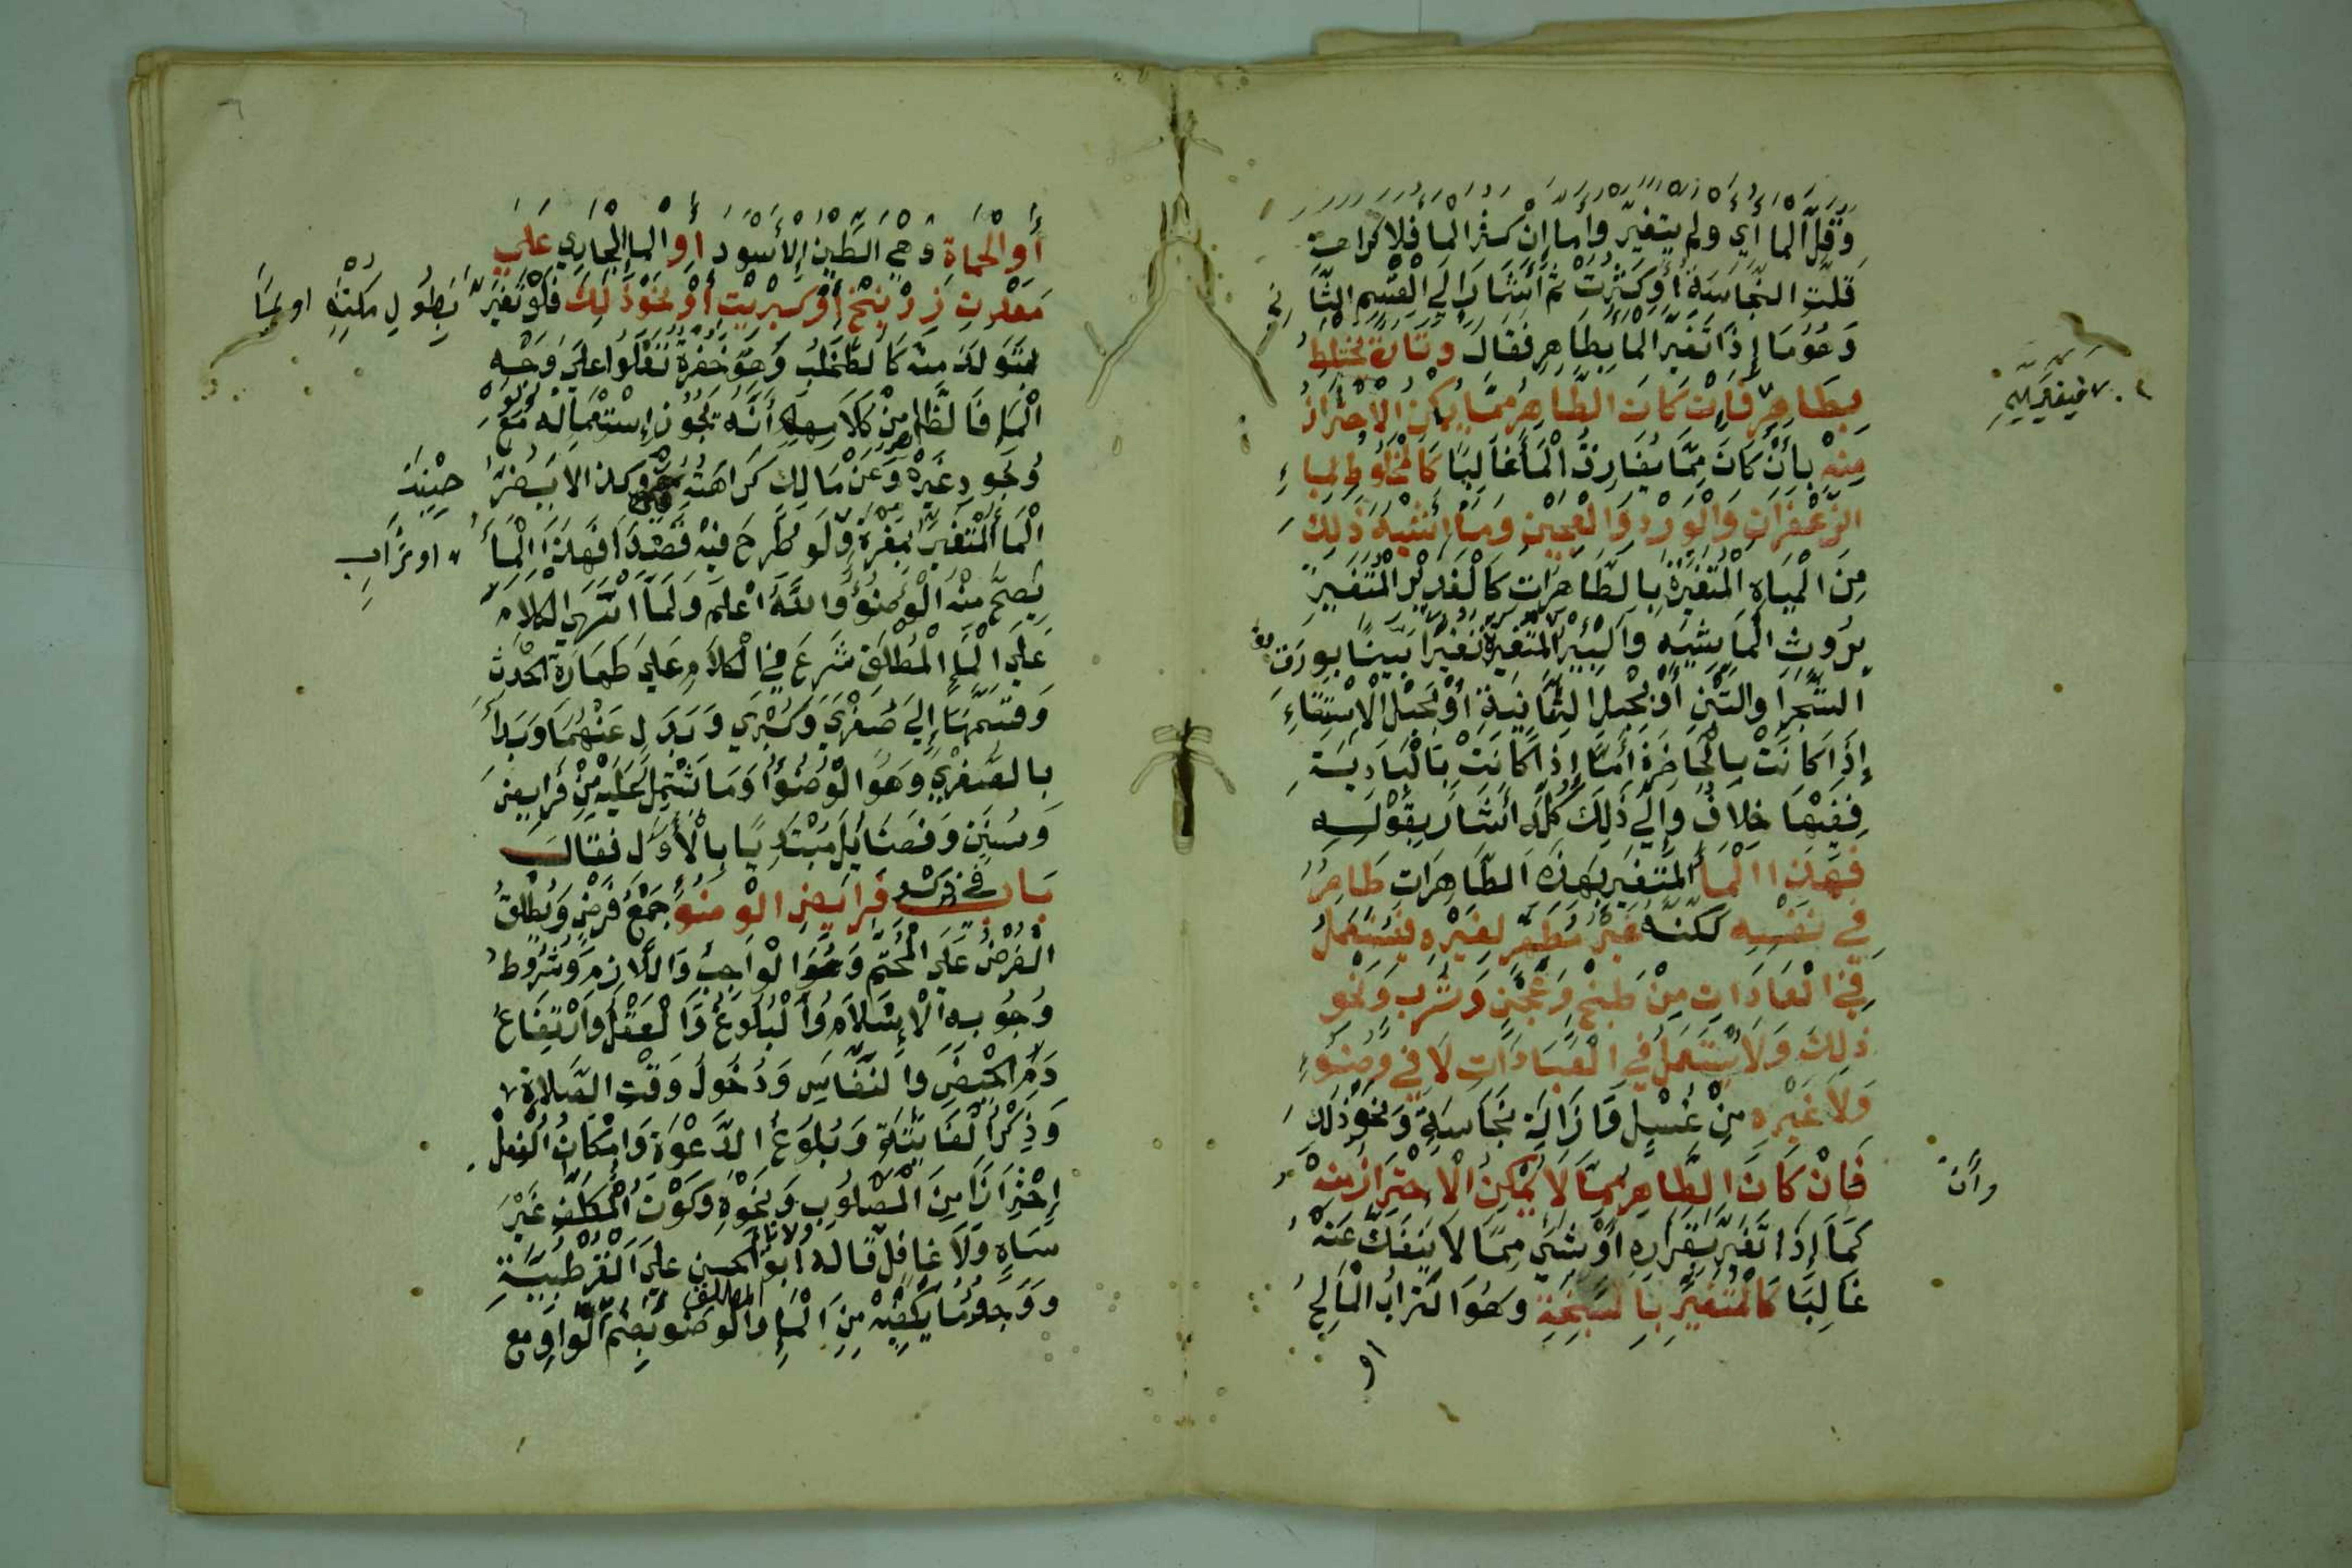 وَقَلَّ الْمَا أَيْ وَلم يتغيّر وأما إن كثر الما فلا كراهة
قلّت النّجاسة أَوْ كَثُرَتْ ثم أَشَارَ إلى الْقسم الثّاني
وَهُوَ مَا إِذَا تَغَيَّرَ الْمَا بِطَاهِرٍ فقال وَتَارَة يختلط
بِطَاهِرٍ فَإِن كَانَ الطَّاهِرُ مِمَّا يُمْكِنُ الاحْتِرَازُ
مِنْهُ بِأَنْ كَانَ مِمَّا يُفَارِقُ الْمَا غَالِبًا كَالْمَخْلُوطِ بِمَاءِ
الزَّعْفَرَانِ وَالْوَرْدِ وَالْعَجِين وَمَا أَشْبَهَ ذَلِكَ
مِنَ الْمِيَاهِ الْمُتَغَيِّرَةِ بِالطَّاهِرَاتِ كَالْغَدِيْرِ الْمُتَغَيِّرِ
بِرَوْثِ الْمَاشِيَةِ وَالْبِئْرِ الْمُتَغَيِّرَةِ تَغَيُّرًا بَيِّنًا بِوَرَقِ
الشَّجَرِ أَوالتِّبْنِ أَوْ بِحَبْلِ السَّانِيَةِ أَوْ بِحَبْلِ الإِسْتِقَاءِ
إِذَا كَانَتْ بِالْحَاضِرَةِ أَمَّا إِذَا كَانَتْ بِالْبَادِيَةِ
فَفِيهَا خِلاَفٌ وَإِلَى ذَلِكَ كُلِّهِ أَشَارَ بِقَوْلِهِ
فَهَذَا الْمَا الْمُتَغَيِّرُ بِهَذِهِ الطَّاهِرَاتِ طَاهِرٌ
فِي نَفْسِهِ لَكِنَّهُ غَيْرُ مُطَهِّرٍ لِغَيْرِهِ فَيُسْتَعْمَلُ
فِي الْعَادَاتِ مِنْ طَبْخٍ وَعَجْنٍ وَشُرْبٍ وَنَحْوِ
ذَلِكَ وَلاَ يُسْتَعْمَلُ فِي الْعِبَادَاتِ لَا فِي وُضُوءٍ
وَلاَ غَيْرِهِ مِنْ غُسْلٍ وَإزَالَةِ نَجَاسَةٍ وَنَحْوِ ذَلِكَ
فَانْ كَانَ الطَّاهِرُ مِمَّا لَا يُمْكِنُ الْاِحْتِرَازُ مِنْهُ
وَأَن
كَمَا إِذَا تَغَيَّرَ بِقَرَارِهِ أَوْ بِشَيْءٍ مِمَّا لَا يَنْفَكُّ عَنْهُ
غَالِبًا كَالْمُتَغَيِّرِ بِالسَّبِخَةِ وَهُوَ التُّرَابُ الْمَالِحُ
او
أَوِ الْحَمْأَةِ وَهِيَ الطِّينُ الأَسْوَد او الما الْجَارِي عَلَى
مَعْدَنِ زِرْنِيخٍ أَوْ كِبْرِيْتٍ أَوْ نَحْوِ ذَلِكَ فَلَوْ تَغَيَّرَ بِطُولِ مَكْثِهِ او بما
يتَوَلَّدُ مِنْهُ كَالطُّحْلُبِ وَهُوَ خُضْرَةٌ تَعْلُوا عَلَى وَجْهِ
الْمَا فَالظَّاهِرُ مِنْ كَلَامِهِمْ أَنَّهُ يَجُوزُ إِسْتِعْمَالُهُ مَعَ
وُجُودِ غَيْرِهِ وَعَنْ مَالِكٍ كَرَاهَتُهُ وَكذا لا يَضُرُّ حِيْنَئِذ
الْمَا الْمُتَغَيِّرُ بِمَغْرَةٍ او تُرَابٍ وَلَو طُرِحَ فِيْهِ قَصْدًا فَهَذَا الْمَا
يَصِحُّ مِنْهُ الْوُضُوُ وَاللَّهُ أَعْلَم وَلَمَّا انْتَهَى الْكلَامُ
عَلَى الْمَا الْمُطْلَقِ شَرَعَ فِي الْكَلاَمِ عَلَى طَهَارَةِ الْحَدَثِ
وَقَسَّمَهَا إِلَى صُغْرَى وَكُبْرَى وَبَدَلٍ عَنْهُمَا وَبَدَأَ
بِالصُّغْرَى وَهُوَ الْوُضُوُ وَمَا يَشْتَمِلُ عَلَيْهِ مِنْ فَرَايِضَ
وَسُنَنٍ وَفَضَايِلَ مُبْتَدِيًا بِالْأَوَّلِ فَقَالَ
بَابٌ فِي ذِكر فَرَايِضِ الْوُضُوُ جَمْعُ فَرْضٍ وَيُطْلَقُ
الْفَرْضُ عَلَى الْمُحَتَّمِ وَهُوَ الْوَاجِبُ وَاللَّازِمُ وَشُرُوطُ
وُجُوبِهِ الْإِسْلَامُ وَالْبُلُوغُ وَالْعَقْلُ وَارْتِفَاعُ
دَمِ الْحَيْضِ وَالنِّفَاسِ وَدُخُولُ وَقْتِ الصَّلاةِ
وَذِكْرُ الْفَايِتَةِ وَبُلُوغُ الدَّعْوَةِ وَامْكَانُ الْفِعْلِ
اِحْتِرَازًا مِنَ الْمَصْلُوبِ وَنَحْوِهِ وَكَوْنُ الْمُكَلَّفِ غَيْرَ
سَاهٍ وَلَا غَافِلٍ وَلَا نَائِم قَالَهُ ابُو الْحسن عَلَى الْقُرْطُبِيَّةِ
وَوُجُودُ مَا يَكْفِيْهِ مِنَ الْمَا المطلق وَالْوضُو بِضَمِّ الْوَاوِ مع